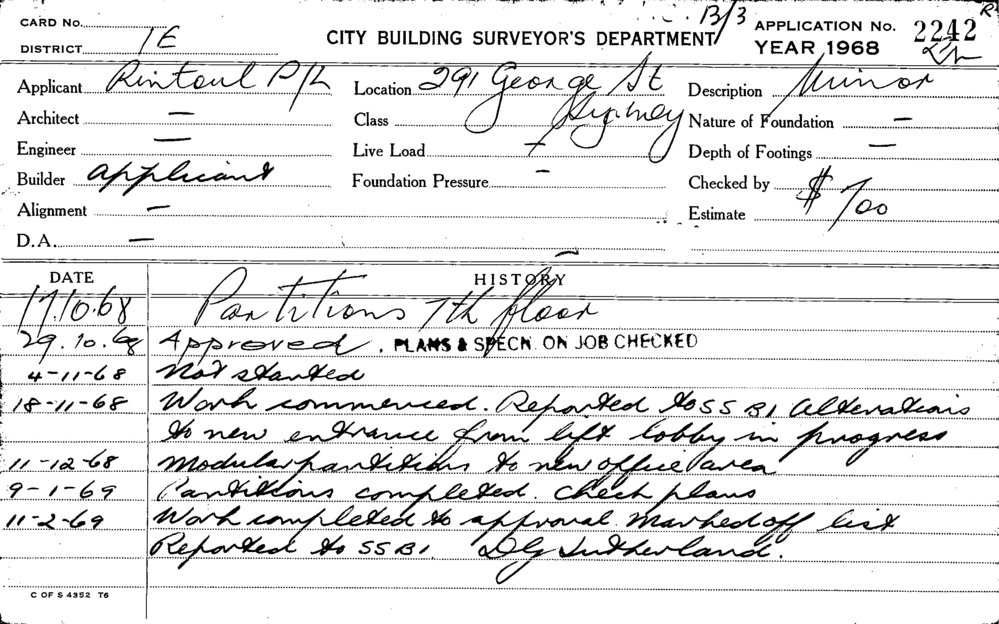 B/3 R
CARD No. APPLICATION No. 2242
DISTRICT 1E CITY BUILDING SURVEYOR'S DEPARTMENT YEAR 1968
Applicant Rintoul P/L Location 291 George St Description Minor
Architect — Class Sydney Nature of Foundation —
Engineer — Live Load Depth of Footings —
Builder applicant Foundation Pressure — Checked by
Alignment — Estimate $700
D.A. —
DATE HISTORY
17.10.68 Partitions 7th floor
29.10.68 Approved. PLANS & SPECN. ON JOB CHECKED
4-11-68 Not started
18-11-68 Work commenced. Reported to SS B1 Alterations
to new entrance from lift lobby in progress
11-12-68 Modular partitions to new office area
9-1-69 Partitions completed. Check plans
11-2-69 Work completed to approval. Marked off list
Reported to SS B1 DG Sutherland.
C OF S 4352 T6